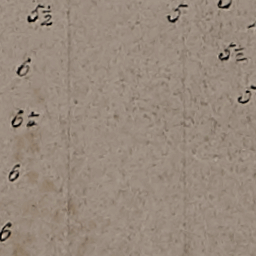 5½ 5
5½
6
5
6¼
6
6